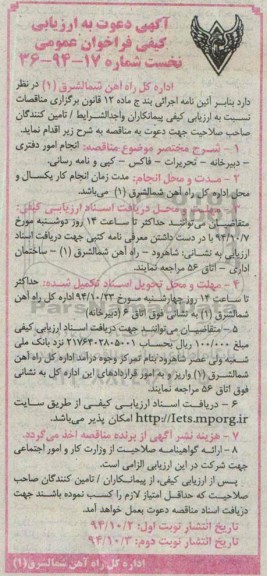 آگهی دعوت به ارزیابی
کیفی فراخوان عمومی
نخست شماره ۱۷-۹۴-۳۶
اداره کل راه آهن شمالشرق (۱) در نظر
دارد بنابر آئین نامه اجرائی بند ج ماده ۱۲ قانون برگزاری مناقصات
نسبت به ارزیابی کیفی پیمانکاران واجدالشرایط / تامین کنندگان
صاحب صلاحیت جهت دعوت به مناقصه به شرح زیر اقدام نماید.
۱ - شرح مختصر موضوع مناقصه: انجام امور دفتری
- دبیرخانه - تحریرات - فاکس - کپی و نامه رسانی.
۲ - مدت و محل انجام: مدت زمان انجام کار یکسال و
محل اداره کل راه آهن شمالشرق (۱) می‌باشد.
۳ - مهلت و محل دریافت اسناد ارزیابی کیفی:
متقاضیان می‌توانند حداکثر تا ساعت ۱۴ روز دوشنبه مورخ
۹۴/۱۰/۷ با در دست داشتن معرفی نامه کتبی جهت دریافت اسناد
ارزیابی به نشانی: شاهرود - راه آهن شمالشرق (۱) - ساختمان
اداری - اتاق ۵۶ مراجعه نمایند.
۴ - مهلت و محل تحویل اسناد تکمیل شده: حداکثر
تا ساعت ۱۴ روز چهارشنبه مورخ ۹۴/۱۰/۲۳ اداره کل راه آهن
شمالشرق (۱) به نشانی فوق اتاق ۶ (دبیرخانه)
۵ - متقاضیان می‌توانند جهت دریافت اسناد ارزیابی کیفی
مبلغ ۱۰۰/۰۰۰ ریال بحساب ۲۱۷۶۴۰۲۸۰۵۰۰۱ نزد بانک ملی
شعبه ولی عصر شاهرود بنام تمرکز وجوه درآمد اداره کل راه آهن
شمالشرق (۱) واریز و به امور قراردادهای این اداره کل به نشانی
فوق اتاق ۵۶ مراجعه نمایند.
۶ - دریافت اسناد ارزیابی کیفی از طریق سایت
http://Iets.mporg.ir امکان پذیر می‌باشد.
۷ - هزینه نشر آگهی از برنده مناقصه اخذ می‌گردد.
۸ - ارائه گواهینامه صلاحیت از وزارت کار و امور اجتماعی
جهت شرکت در این ارزیابی الزامی است.
پس از ارزیابی کیفی، از پیمانکاران / تامین کنندگان صاحب
صلاحیت که حداقل امتیاز لازم را کسب نموده باشند جهت
دریافت اسناد مناقصه دعوت بعمل خواهد آمد.
تاریخ انتشار نوبت اول: ۹۴/۱۰/۲
تاریخ انتشار نوبت دوم: ۹۴/۱۰/۳
اداره کل راه آهن شمالشرق (۱)